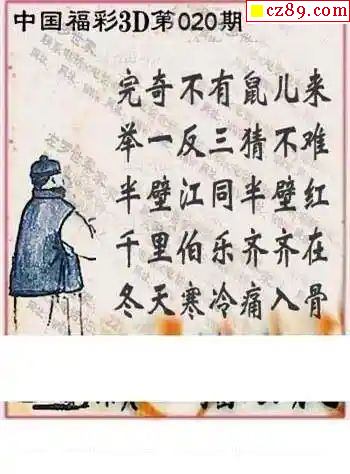 cz89.com
中国福彩3D第020期
完奇不有鼠儿来
举一反三猜不难
半壁江同半壁红
千里伯乐齐齐在
冬天寒冷痛入骨